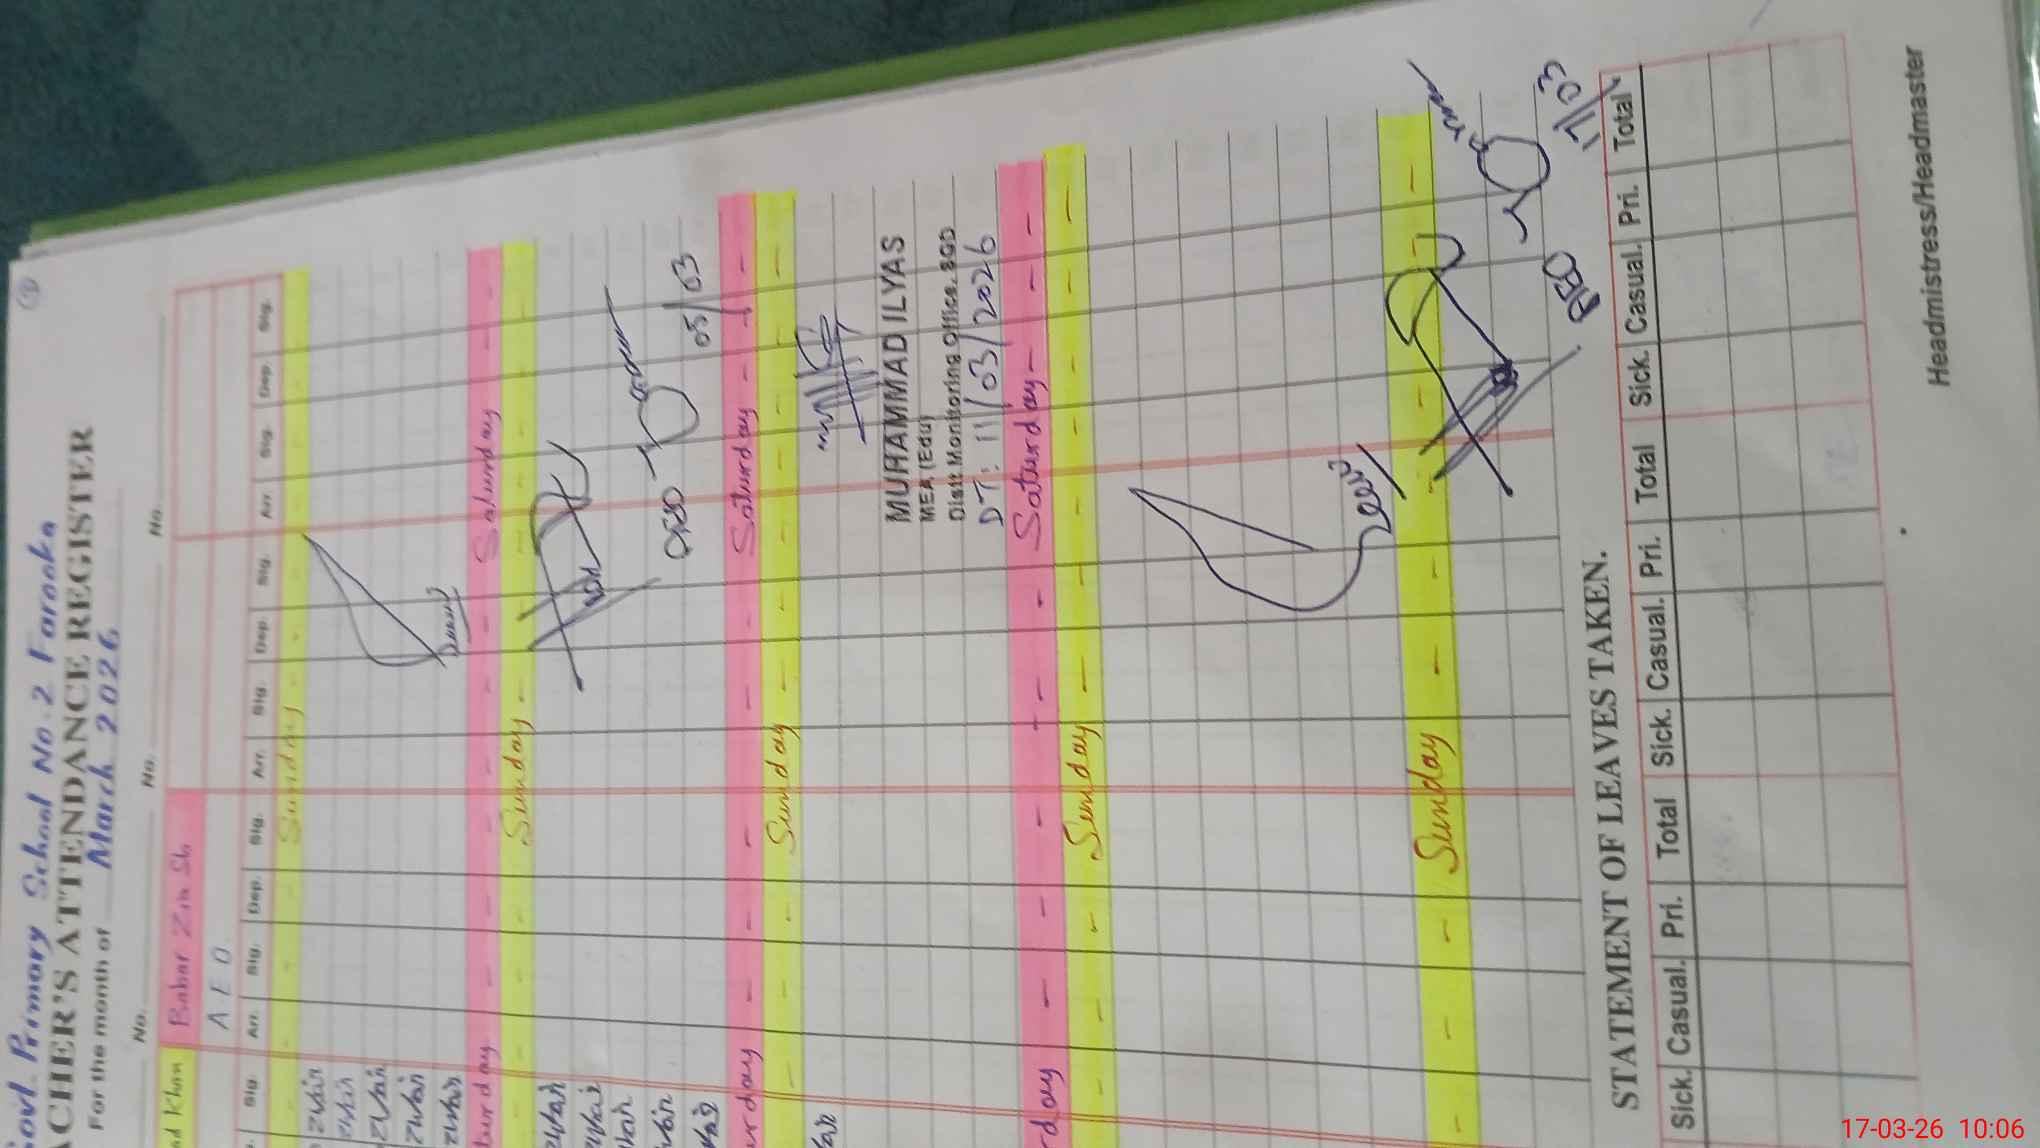 Govt. Primary School No. 2 Farooka
TEACHER'S ATTENDANCE REGISTER
For the month of March 2026
No. No. No.
ad Khan Babar Zia Sb
A E O
Sig. Arr. Sig. Dep. Sig. Arr. Sig. Dep. Sig. Arr. Sig. Dep. Sig.
Sunday
turday Saturday
Sunday
AEO 05/03
urday Saturday
Sunday
MUHAMMAD ILYAS
MEA (Edu)
Distt Monitoring Office, SGD
DT: 11/03/2026
rday Saturday
Sunday
Sunday
AEO 17/03
STATEMENT OF LEAVES TAKEN.
Sick. Casual. Pri. Total Sick. Casual. Pri. Total Sick. Casual. Pri. Total
Headmistress/Headmaster
17-03-26 10:06